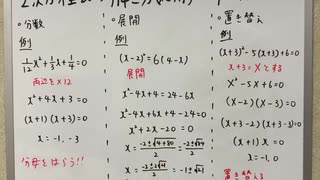 ・分数
例
1/12x²+1/3x+1/4=0
両辺を×12
x²+4x+3=0
(x+1)(x+3)=0
x=-1,-3
分母をはらう!!
・展開
例
(x-2)²=6(4-x)
展開
x²-4x+4=24-6x
x²-4x+6x+4-24=0
x²+2x-20=0
x=-2±√4+80/2=-2±√84/2
=-2±2√21/2=-1±√21
・置き替え
例
(x+3)²-5(x+3)+6=0
x+3=Xとする
X²-5X+6=0
(X-2)(X-3)=0
(x+3-2)(x+3-3)=0
(x+1)x=0
x=-1,0
置き替える